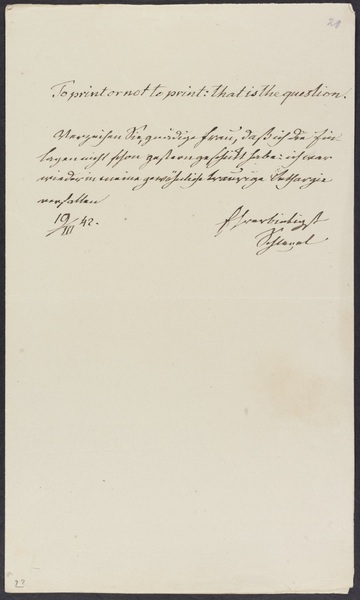 21
To print or not to print: that is the question.
Verzeihen Sie, gnädige Frau, daß ich die Ein-
lagen nicht schon gestern geschickt habe: ich war
wieder in meine gewöhnliche traurige Lethargie
verfallen
19/III 42.
Ehrerbietigst
Schlegel
22